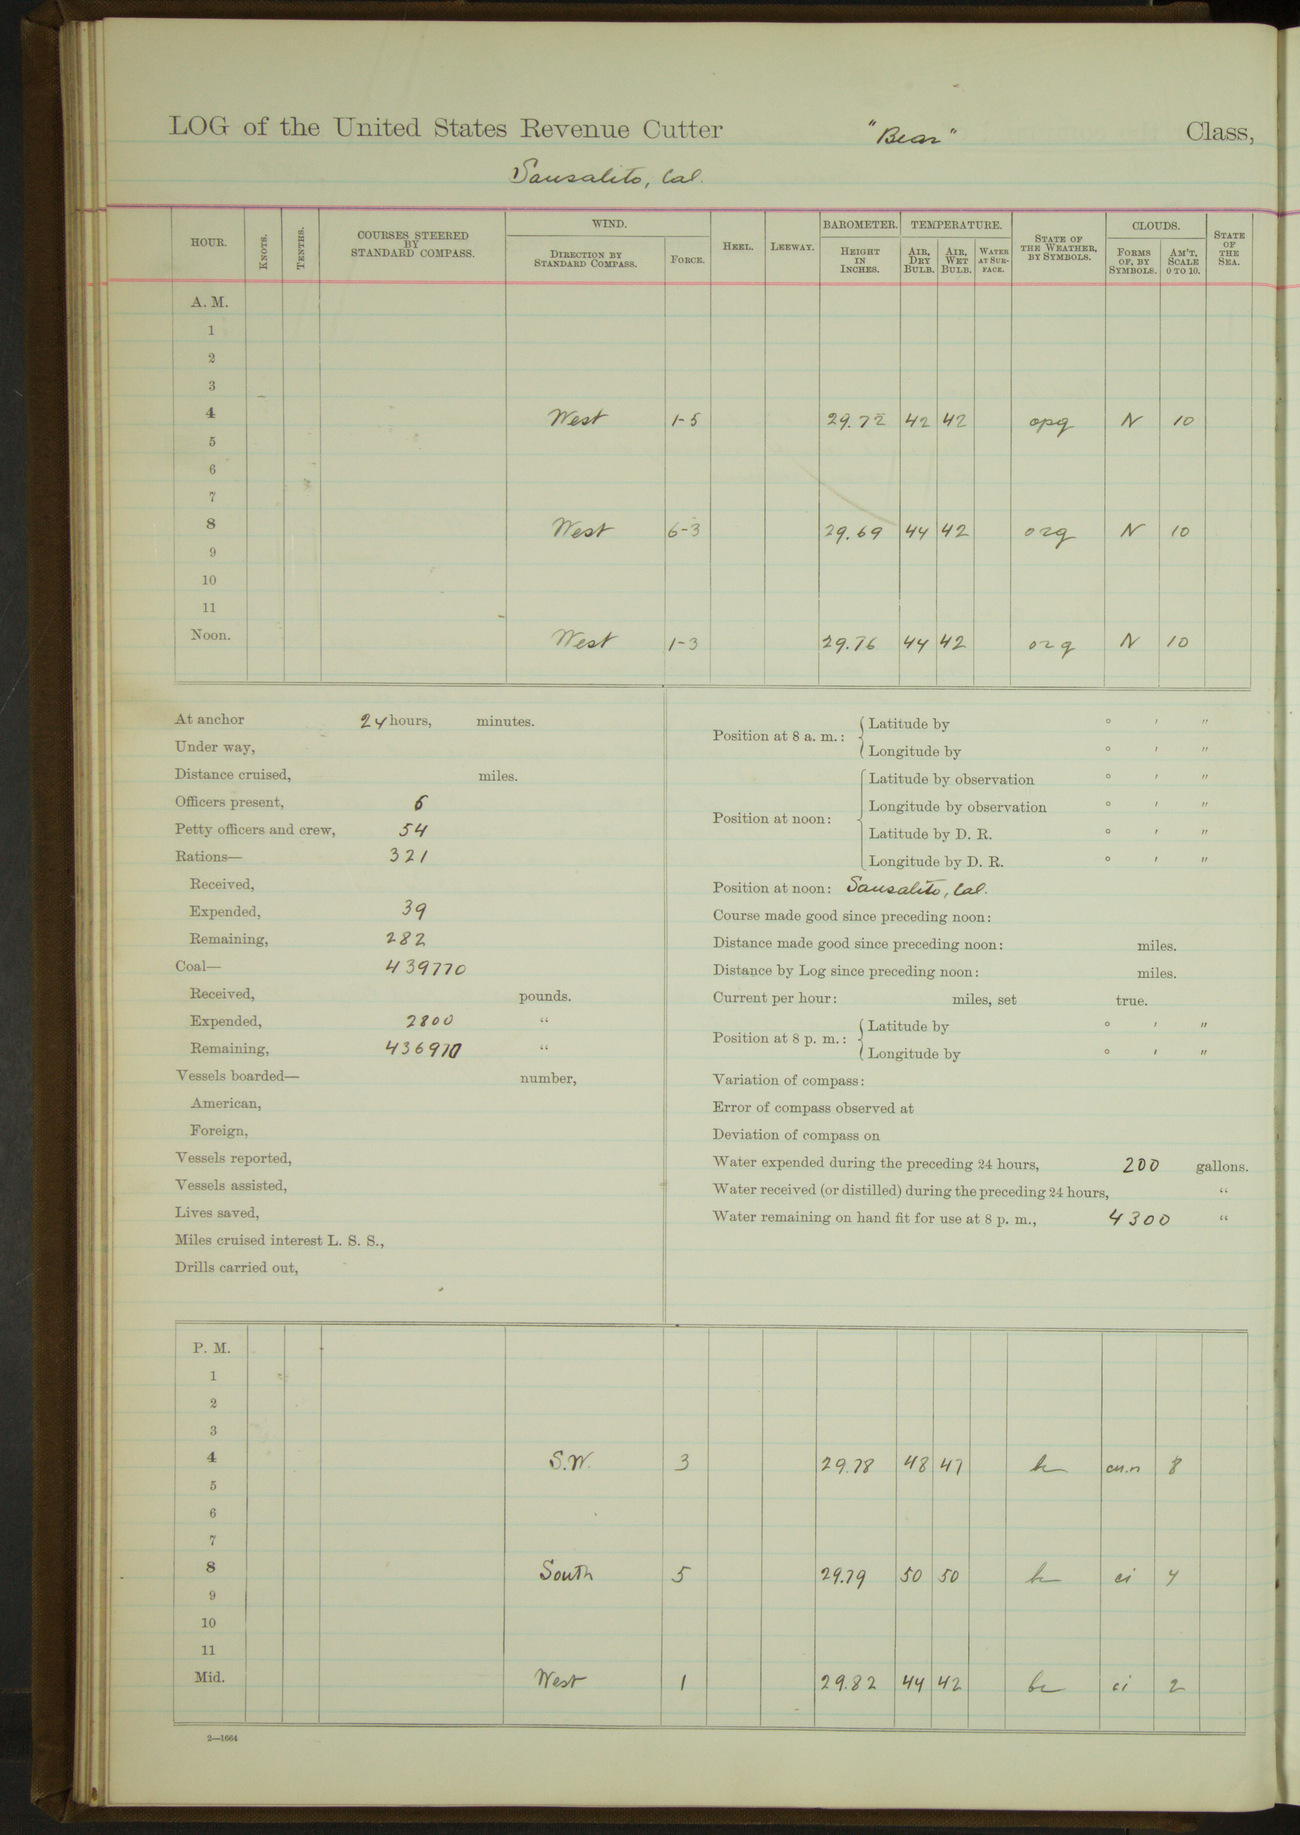 LOG of the United States Revenue Cutter "Bear" Class,
Sausalito, Cal.
HOUR. KNOTS. TENTHS. COURSES STEERED BY STANDARD COMPASS. WIND. DIRECTION BY STANDARD COMPASS. FORCE. HEEL. LEEWAY. BAROMETER. HEIGHT IN INCHES. TEMPERATURE. AIR, DRY BULB. AIR, WET BULB. WATER AT SURFACE. STATE OF THE WEATHER, BY SYMBOLS. CLOUDS. FORMS OF, BY SYMBOLS. AM'T, SCALE 0 TO 10. STATE OF THE SEA.
A. M.
1
2
3
4 West 1-5 29.72 42 42 opq N 10
5
6
7
8 West 6-3 29.69 44 42 orq N 10
9
10
11
Noon. West 1-3 29.76 44 42 orq N 10
At anchor 24 hours, minutes.
Under way,
Distance cruised, miles.
Officers present, 6
Petty officers and crew, 54
Rations— 321
Received,
Expended, 39
Remaining, 282
Coal— 439770
Received, pounds.
Expended, 2800 "
Remaining, 436970 "
Vessels boarded— number,
American,
Foreign,
Vessels reported,
Vessels assisted,
Lives saved,
Miles cruised interest L. S. S.,
Drills carried out,
Position at 8 a. m.: Latitude by ° ′ ″
Longitude by ° ′ ″
Position at noon: Latitude by observation ° ′ ″
Longitude by observation ° ′ ″
Latitude by D. R. ° ′ ″
Longitude by D. R. ° ′ ″
Position at noon: Sausalito, Cal.
Course made good since preceding noon:
Distance made good since preceding noon: miles.
Distance by Log since preceding noon: miles.
Current per hour: miles, set true.
Position at 8 p. m.: Latitude by ° ′ ″
Longitude by ° ′ ″
Variation of compass:
Error of compass observed at
Deviation of compass on
Water expended during the preceding 24 hours, 200 gallons.
Water received (or distilled) during the preceding 24 hours, "
Water remaining on hand fit for use at 8 p. m., 4300 "
P. M.
1
2
3
4 S.W. 3 29.78 48 47 bc cu.n 8
5
6
7
8 South 5 29.79 50 50 bc ci 4
9
10
11
Mid. West 1 29.82 44 42 bc ci 2
2—1664